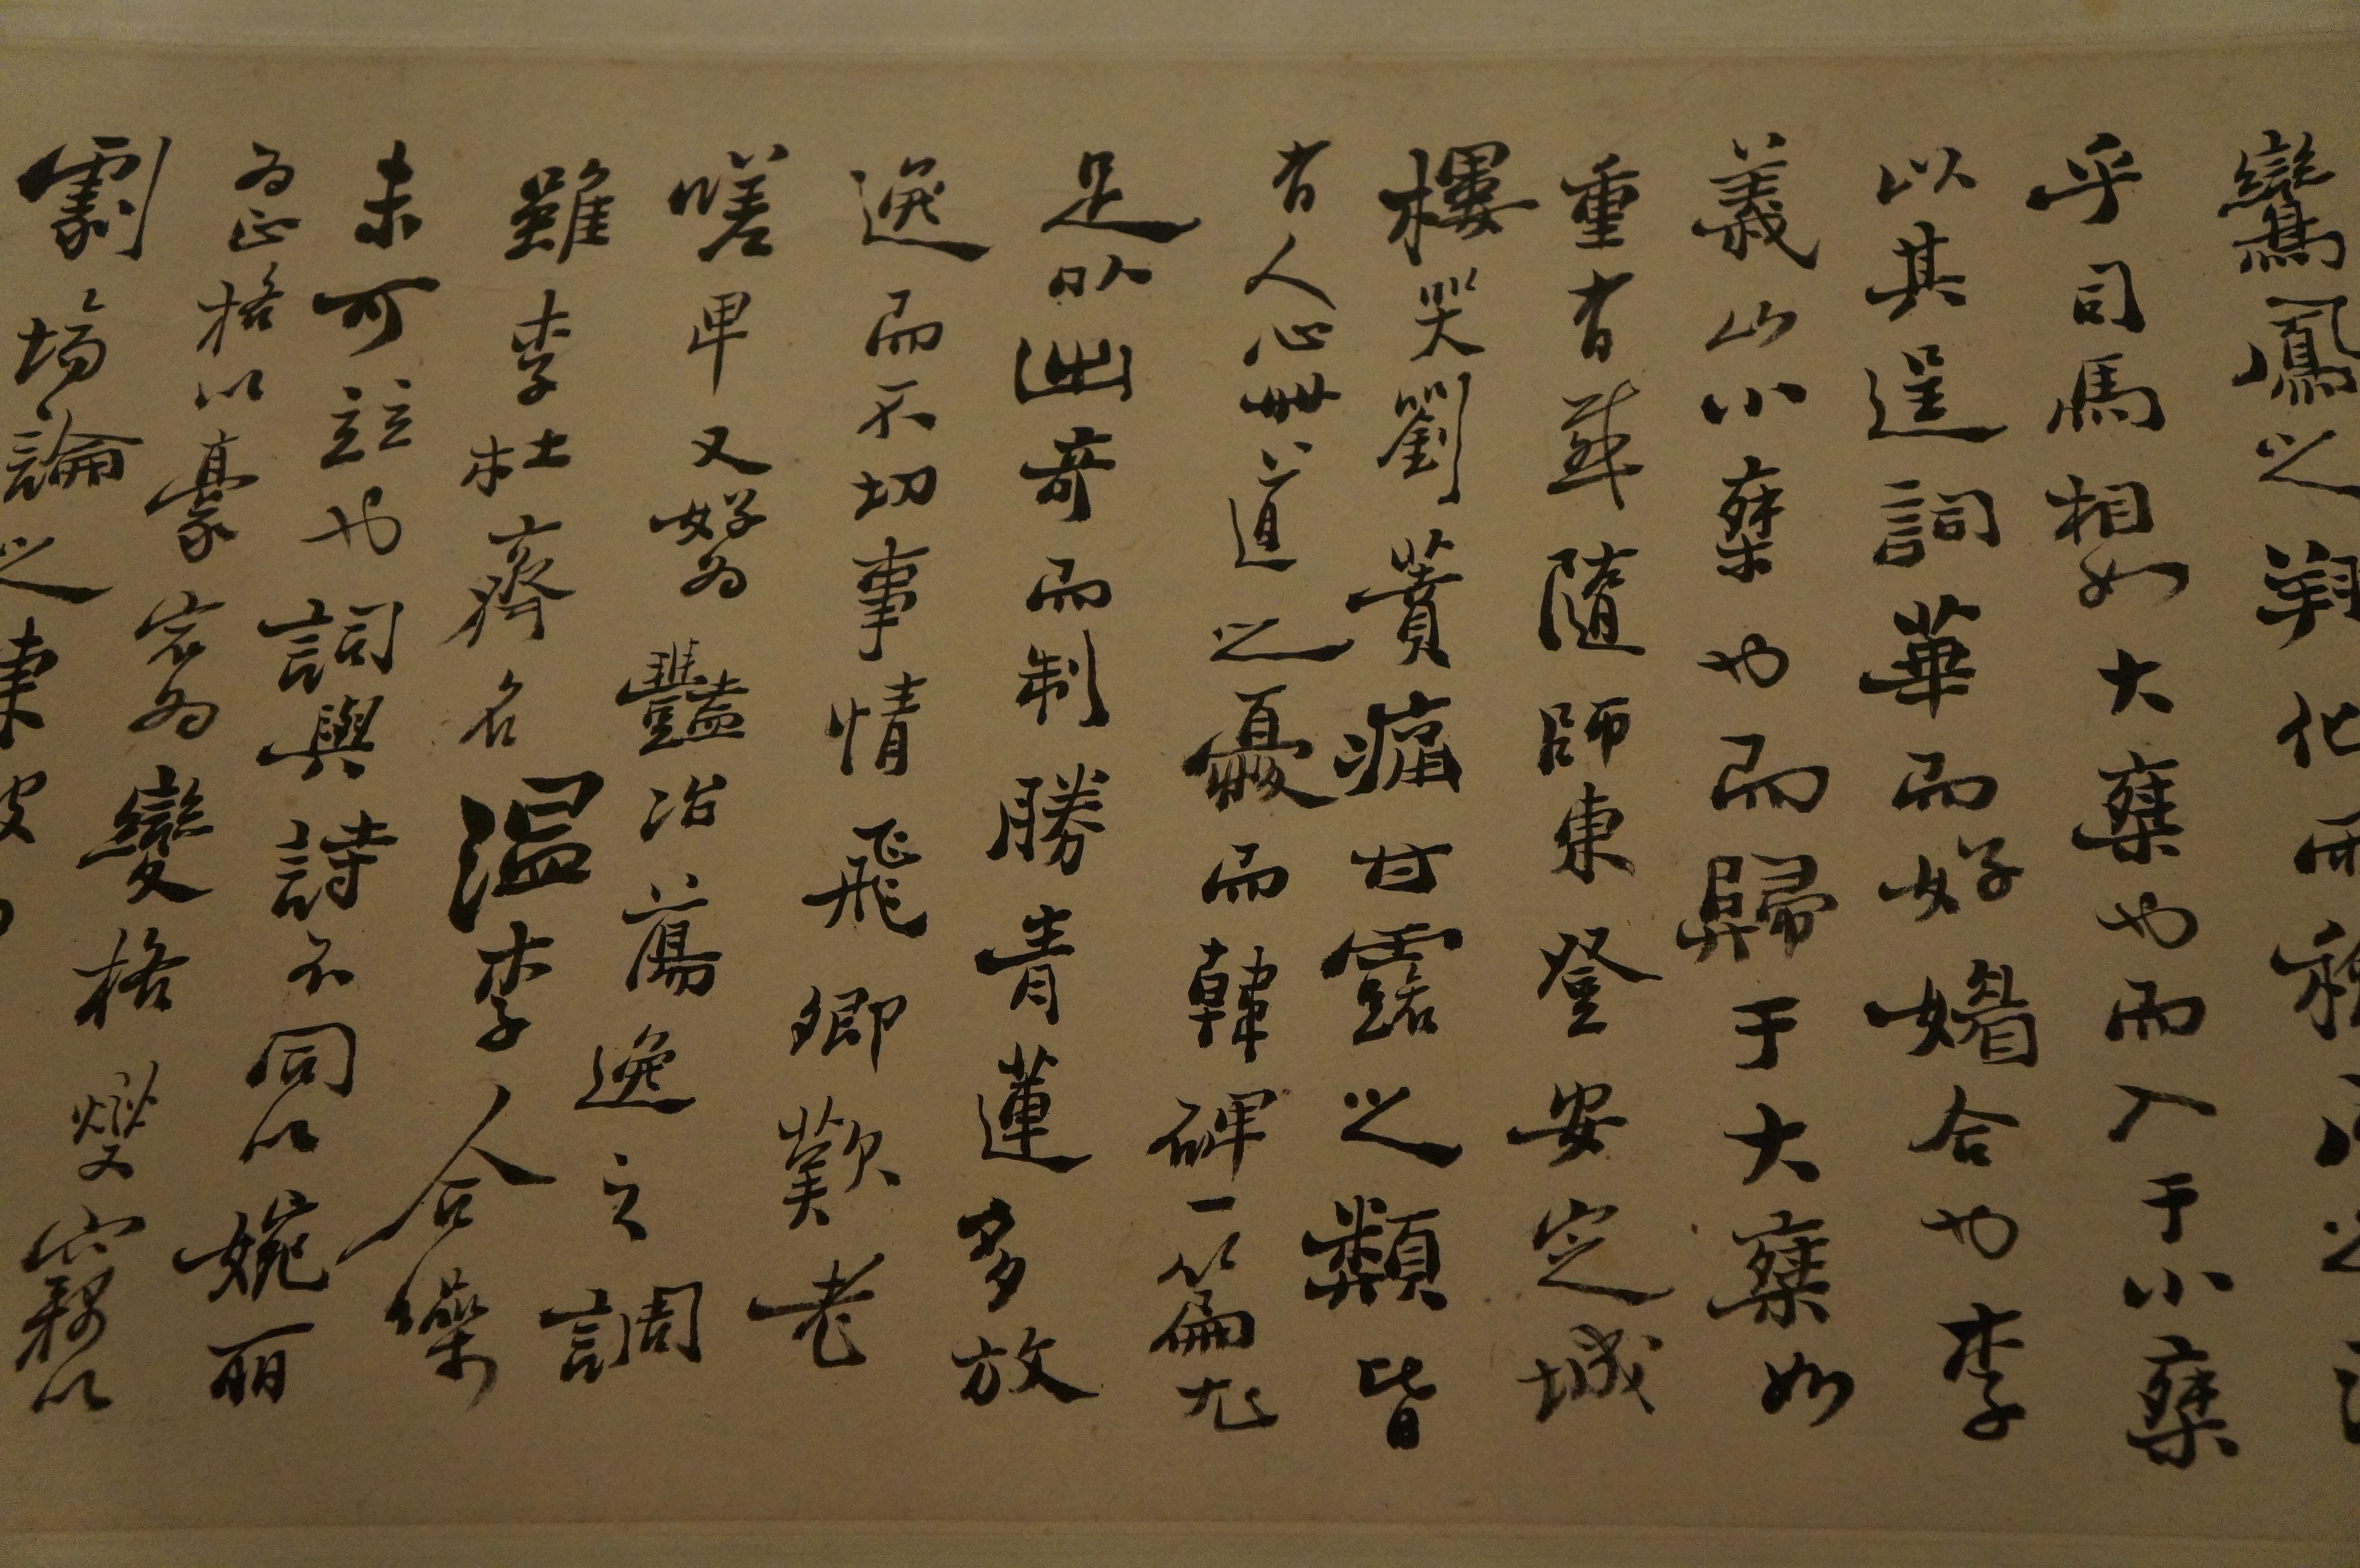 鸞鳳之翔化而
乎司馬相如大乘也而入于小乘
以其逞詞華而好媚合也李
義山小乘也而歸于大乘如
重有感隨師東登安定城
樓哭劉蕡痛甘露之類皆
有人心世道之憂而韓碑一篇尤
足以出奇而制勝青蓮多放
逸而不切事情飛卿歎老
嗟卑又好為豔冶蕩逸之調
雖李杜齊名溫李合
未可竝也詞與詩不同以婉丽
為正格以豪宕為變格燮竊以
劇場論之東坡